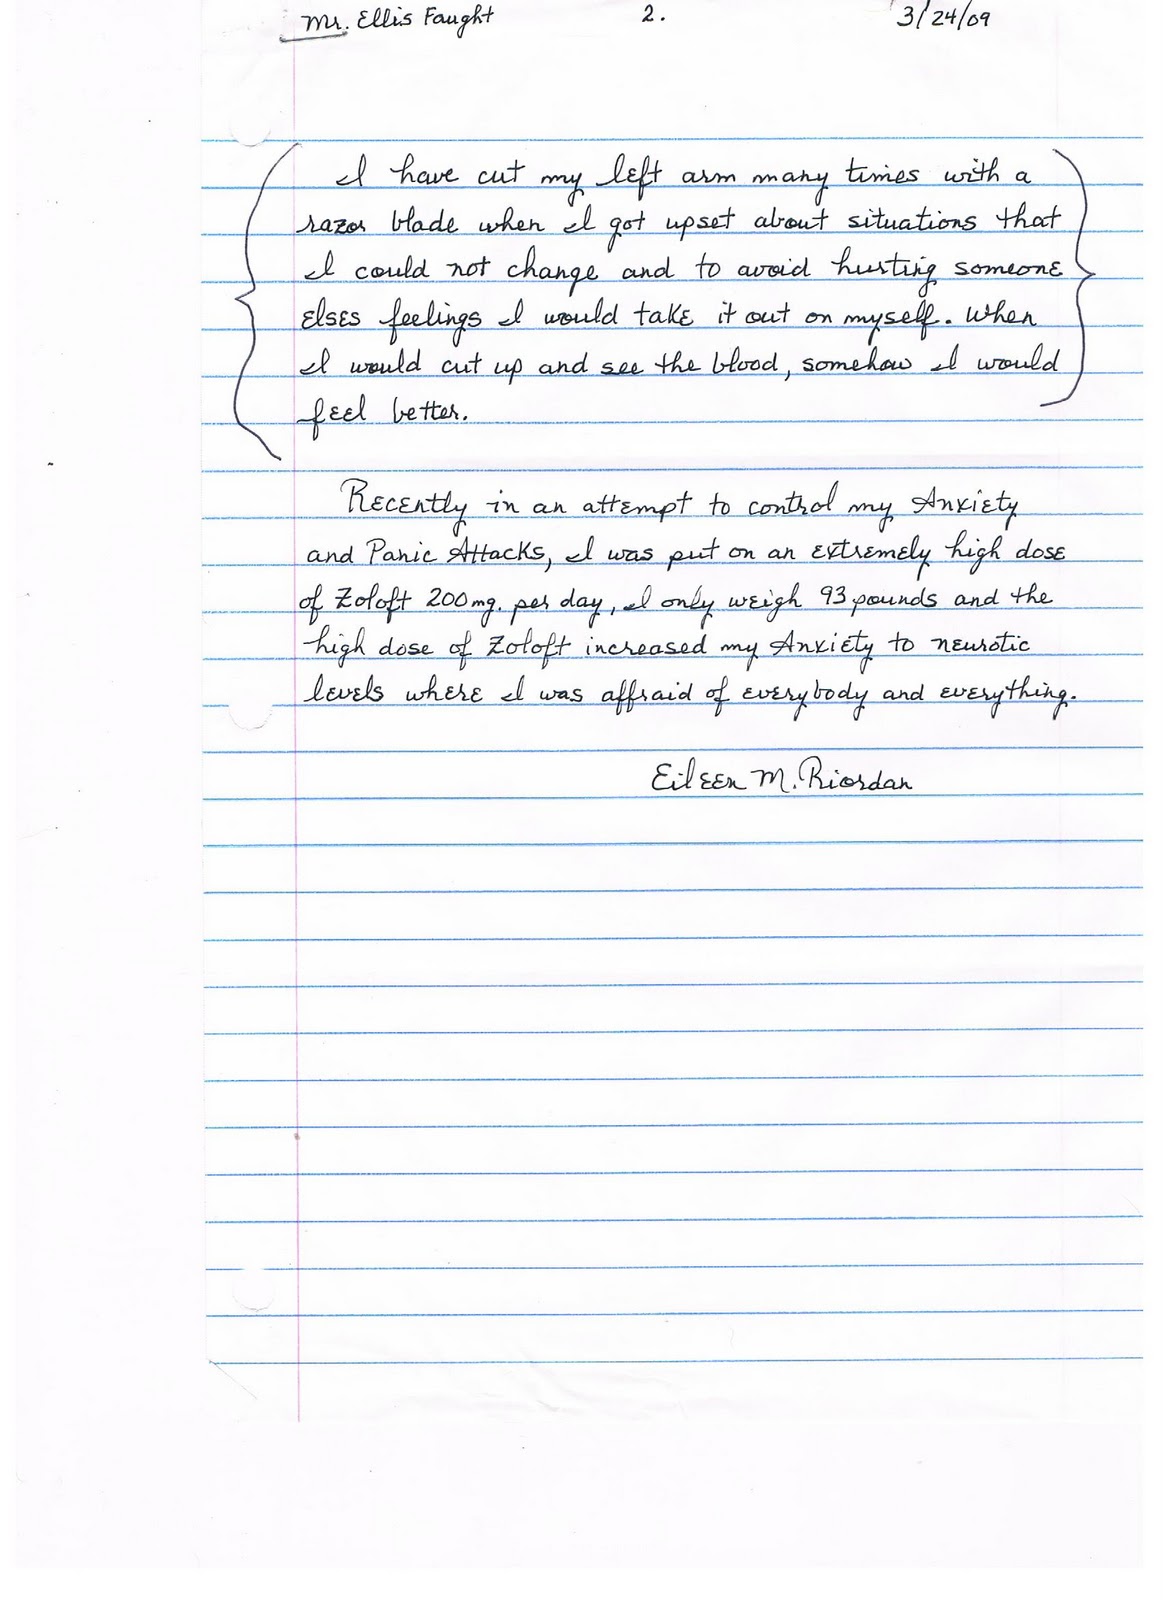 Mr. Ellis Faught 2. 3/24/09
I have cut my left arm many times with a
razor blade when I got upset about situations that
I could not change and to avoid hurting someone
elses feelings I would take it out on myself. When
I would cut up and see the blood, somehow I would
feel better.
Recently in an attempt to control my Anxiety
and Panic Attacks, I was put on an extremely high dose
of Zoloft 200mg. per day, I only weigh 93 pounds and the
high dose of Zoloft increased my Anxiety to neurotic
levels where I was affraid of everybody and everything.
Eileen M. Riordan